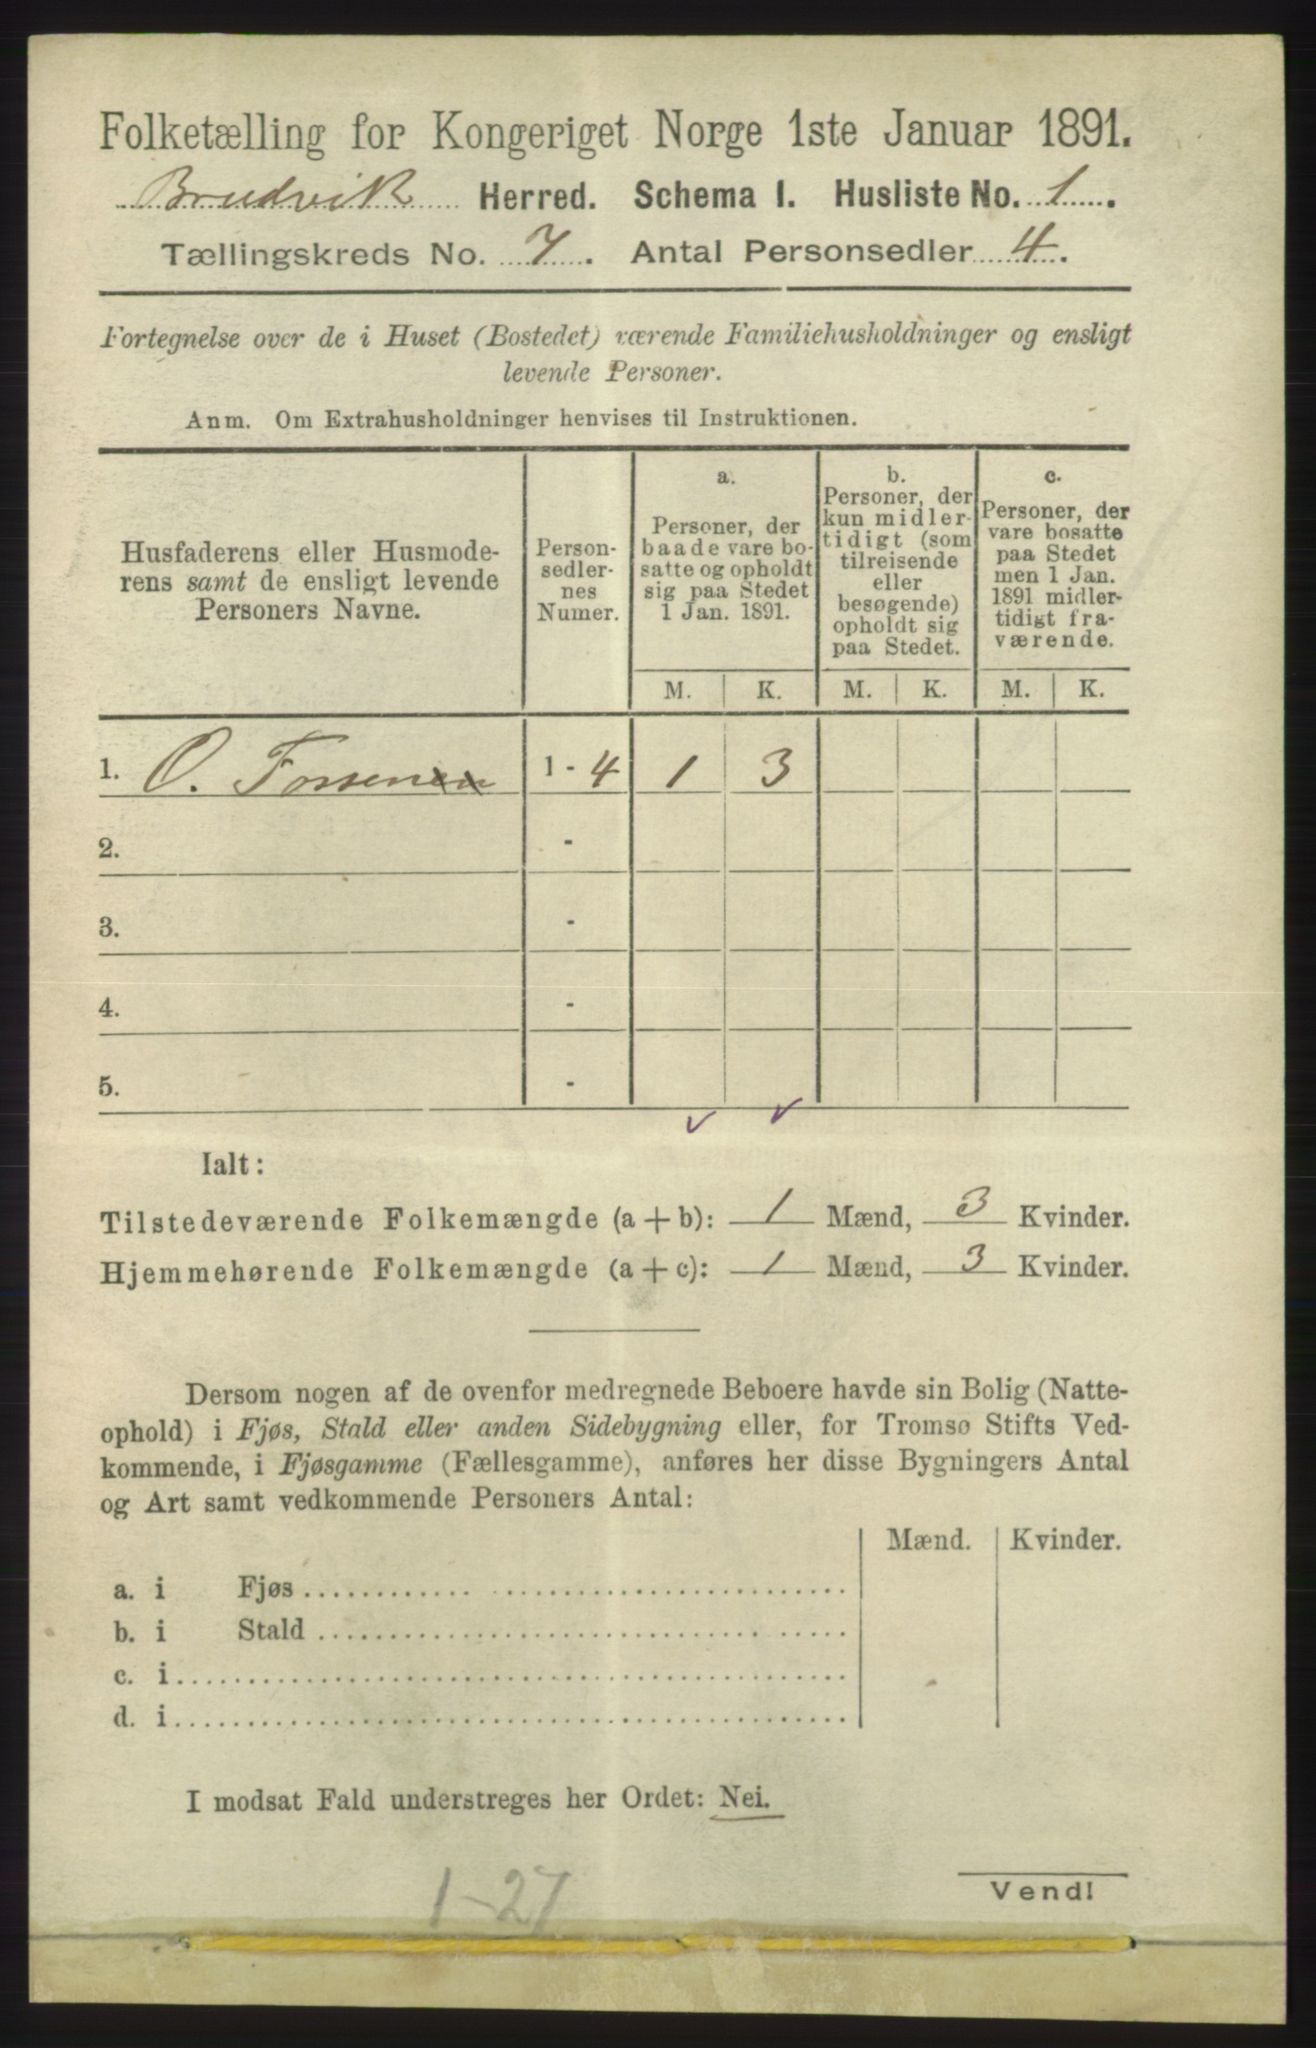 Folketælling for Kongeriget Norge 1ste Januar 1891.
Brudvik Herred. Schema I. Husliste No. 1.
Tællingskreds No. 7. Antal Personsedler 4.
Fortegnelse over de i Huset (Bostedet) værende Familiehusholdninger og ensligt
levende Personer.
Anm. Om Extrahusholdninger henvises til Instruktionen.
Husfaderens eller Husmode-
rens samt de ensligt levende
Personers Navne.
Person-
sedler-
nes
Numer.
a.
Personer, der
baade vare bo-
satte og opholdt
sig paa Stedet
1 Jan. 1891.
b.
Personer, der
kun midler-
tidigt (som
tilreisende
eller
besøgende)
opholdt sig
paa Stedet.
c.
Personer, der
vare bosatte
paa Stedet
men 1 Jan.
1891 midler-
tidigt fra-
værende.
M. K. M. K. M. K.
1. O. Fossen 1 - 4 1 3
2. -
3. -
4. -
5. -
Ialt:
Tilstedeværende Folkemængde (a + b): 1 Mænd, 3 Kvinder.
Hjemmehørende Folkemængde (a + c): 1 Mænd, 3 Kvinder.
Dersom nogen af de ovenfor medregnede Beboere havde sin Bolig (Natte-
ophold) i Fjøs, Stald eller anden Sidebygning eller, for Tromsø Stifts Ved-
kommende, i Fjøsgamme (Fællesgamme), anføres her disse Bygningers Antal
og Art samt vedkommende Personers Antal:
Mænd. Kvinder.
a. i Fjøs
b. i Stald
c. i
d. i
I modsat Fald understreges her Ordet: Nei.
1-27
Vend!